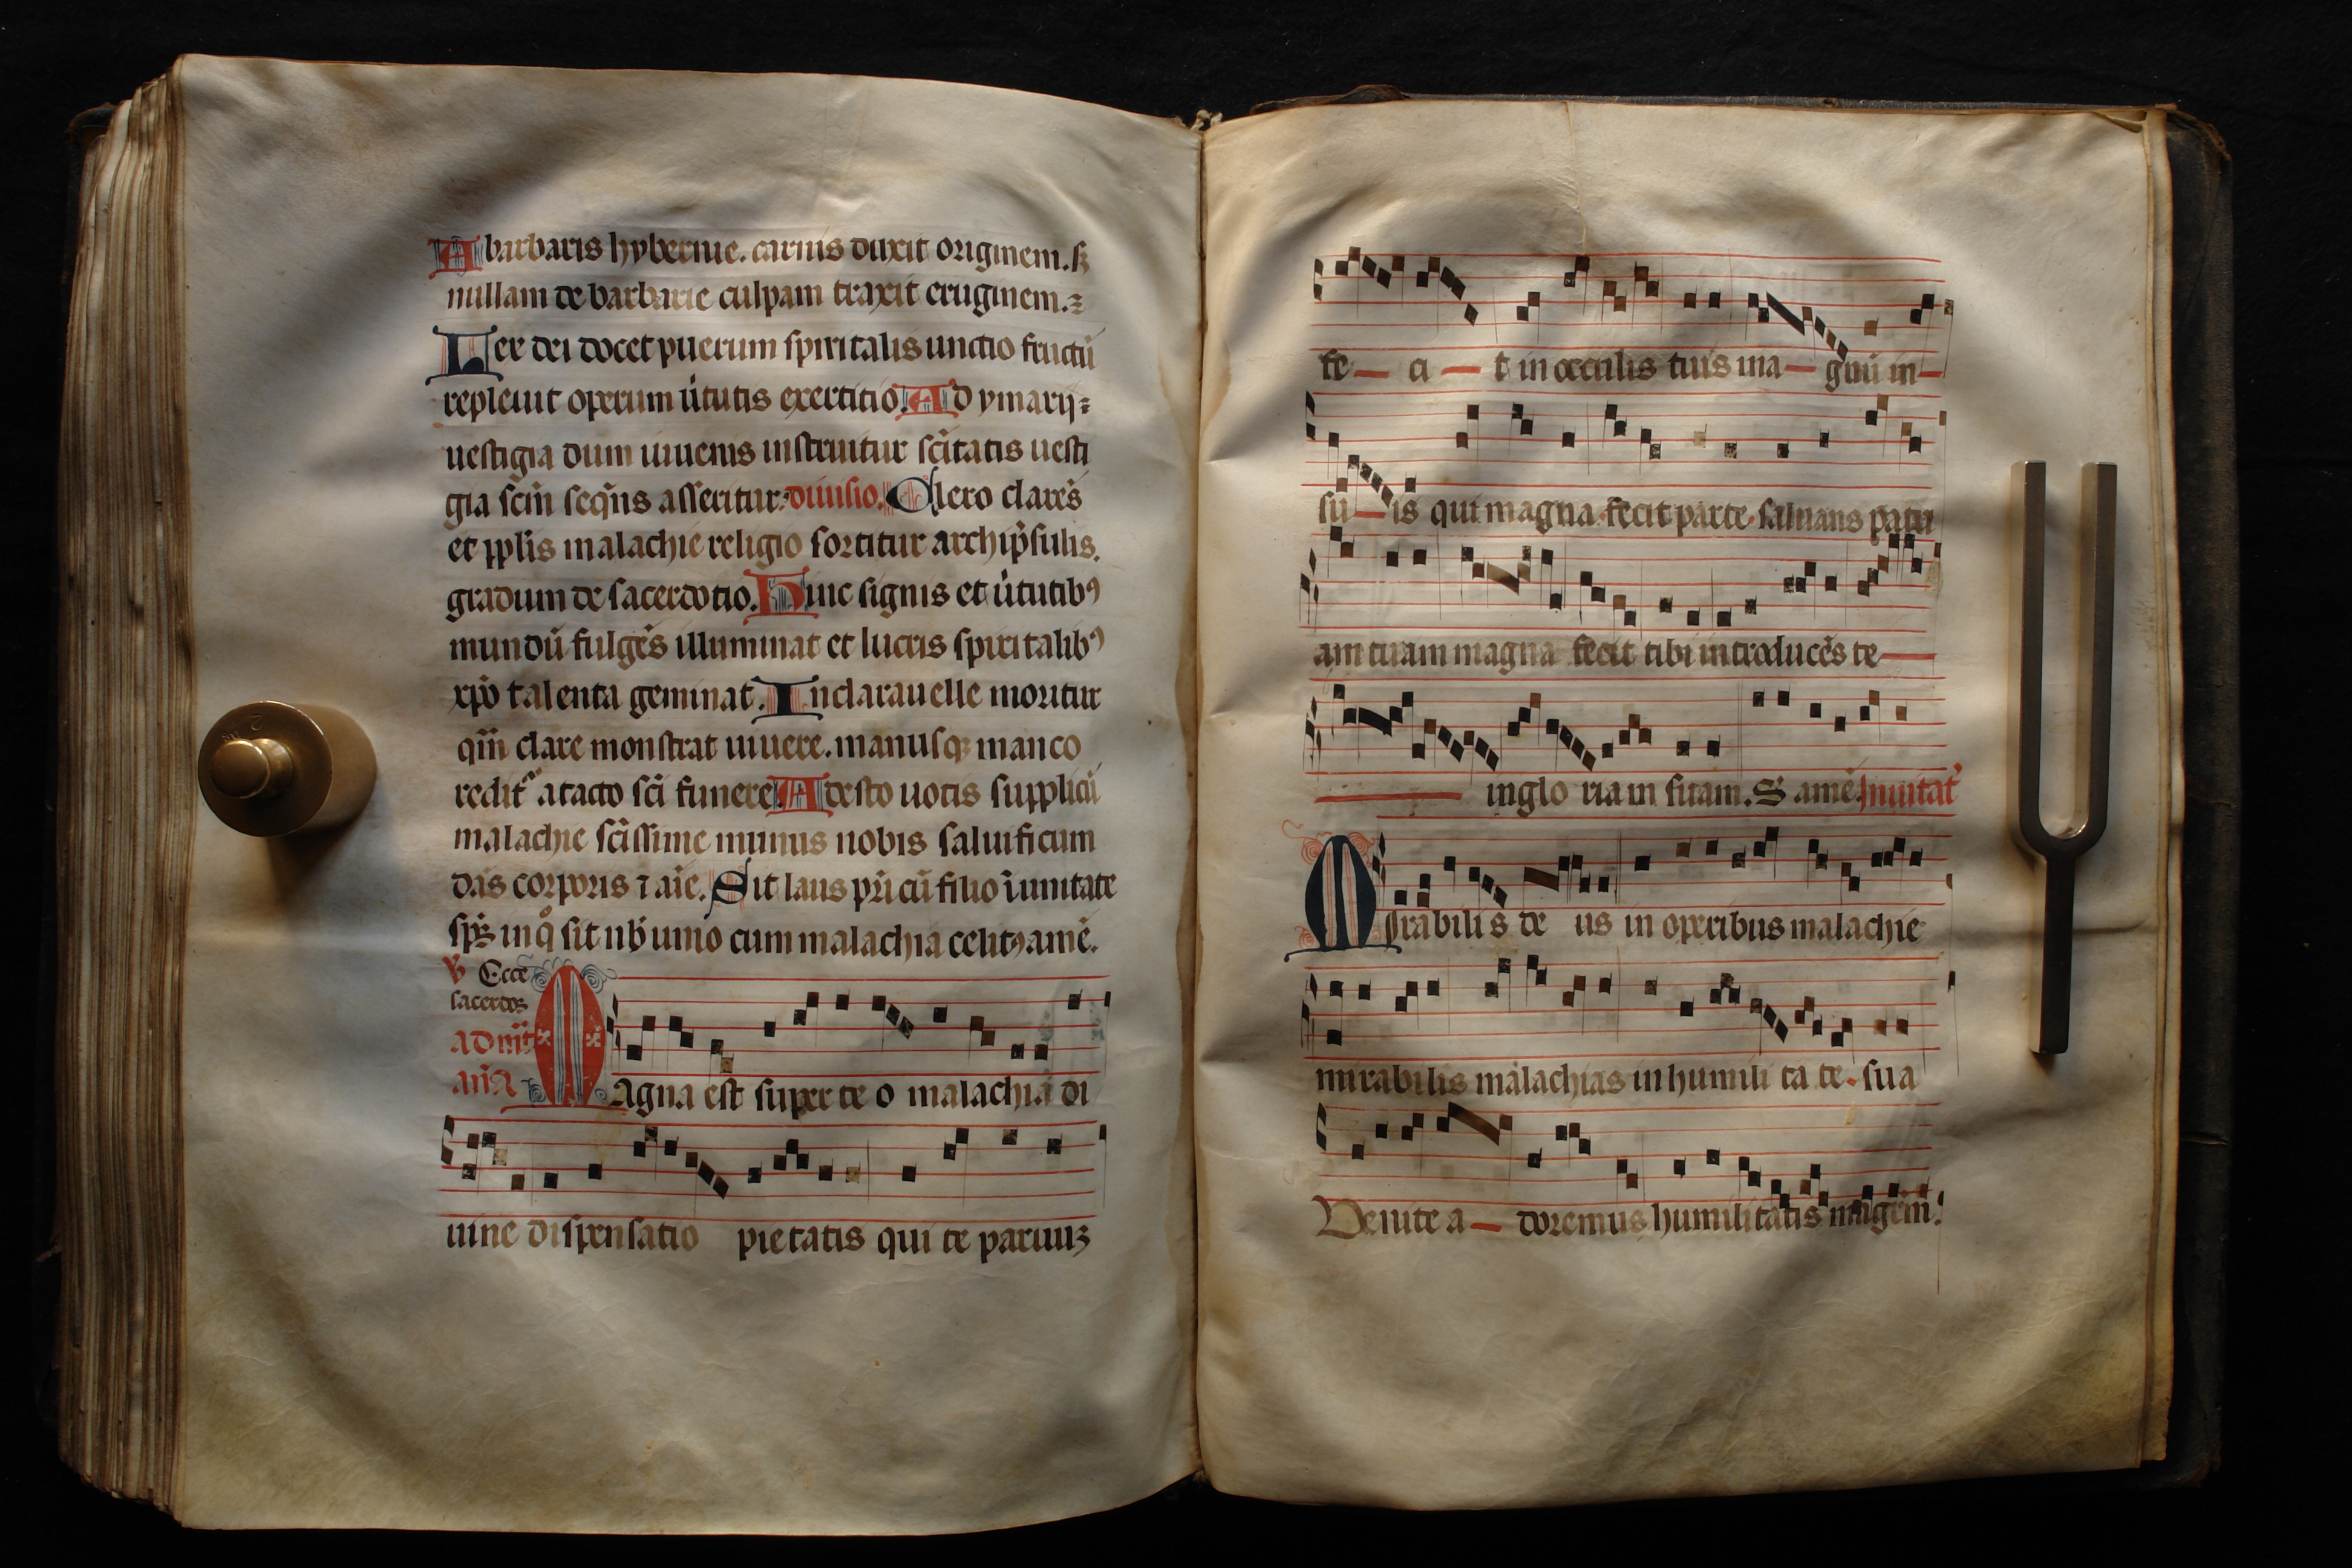 A barbaris hybernie. carnis duxit originem. sꝫ
nullam de barbarie culpam traxit eruginem.
Lex dei docet puerum spiritalis unctio fructū
repleuit operum ũtutis exertitio. Ad ymarij
uestigia dum iuuenis instruitur sc̄itatis uesti
gia scm̄ seqn̄s asseritur. diuisio. Clero clarēs
et pplīs malachie religio sortitur archip̄sulis.
gradum de sacerdotio. Hinc signis et ũtutibꝰ
mundū fulgēs illuminat et lucris spiritalibꝰ
xp̄o talenta geminat. In clarauelle moritur
qm̄ clare monstrat uiuere. manusqꝫ manco
redit᷑ a tacto sc̄i funere. Adesto uotis supplicū
malachie sc̄issime munus nobis saluificum
dās corporis ⁊ aīe. Sit laus pr̄i cū filio ī unitate
sp̄s inq̊ sit nb̄ uino cum malachia celitꝰ amē.
℣ Ecce
sacerdos
ad mr̄
ana
Magna est super te o malachia di
uine dispensatio pietatis qui te paruuꝫ
fe — ci — t in occulis tuis ma — gnū in —
su — is qui magna fecit parte saluans patri
am tuam magna fecit tibi introducēs te —
— in glo riam suam. S amē. Inuitat᷑
Mirabilis de us in operibus malachie
mirabilis malachias in humili ta te sua
Uenite a — doremus humilitatis